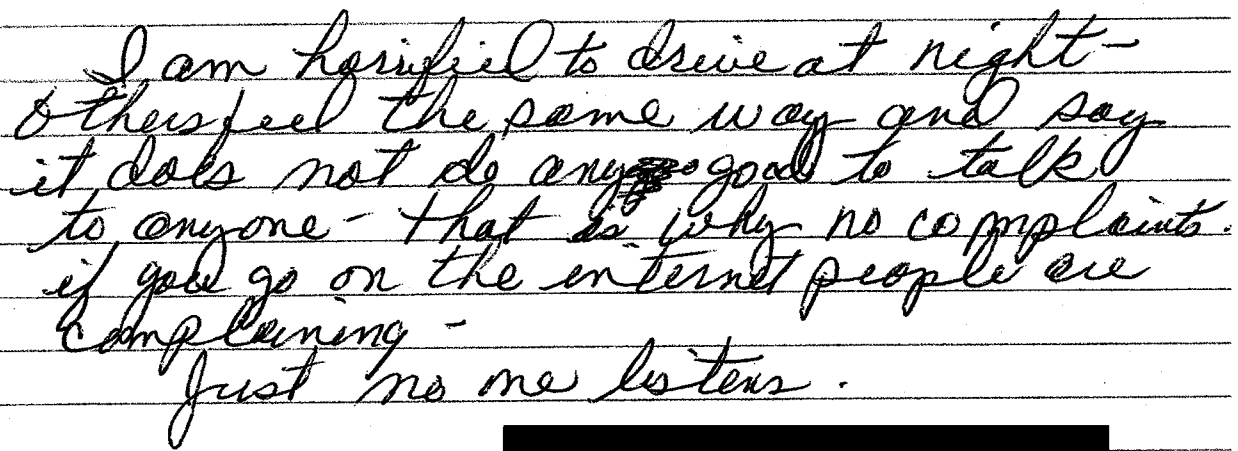 I am horrified to drive at night -
others feel the same way and say
it does not do any good to talk
to anyone - that is why no complaints.
if you go on the internet people are
complaining -
Just no one listens.